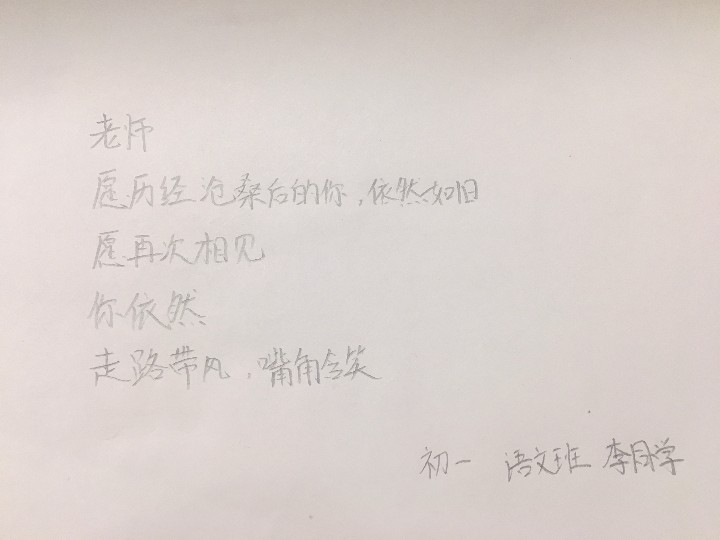 老师
愿历经沧桑后的你，依然如旧
愿再次相见
你依然
走路带风，嘴角含笑
初一 语文班 李同学